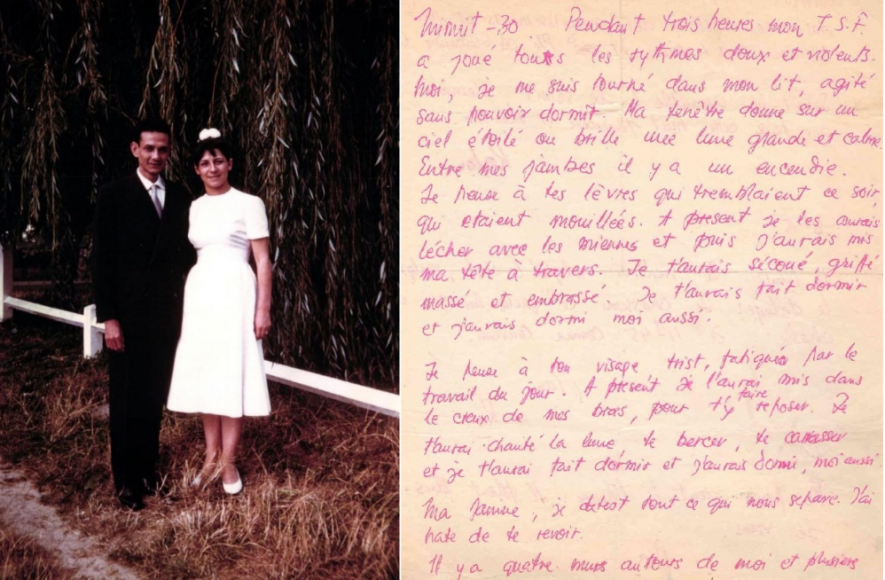 Minuit - 30 Pendant trois heures mon T.S.F.
a joué tous les rythmes doux et violents.
Moi, je me suis tourné dans mon lit, agité
sans pouvoir dormir. Ma fenêtre donne sur un
ciel étoilé ou brille une lune grande et calme.
Entre mes jambes il y a un encendie.
Je pense à tes lèvres qui tremblaient ce soir,
qui etaient mouillées. A present je les aurais
lécher avec les miennes et puis j'aurais mis
ma tête à travers. Je t'aurais sécoué, griffé
massé et embrassé. Je t'aurais fait dormir
et j'aurais dormi moi aussi.
Je pense à ton visage trist, fatiguée par le
travail du jour. A présent je l'aurai mis dans
le creux de mes bras, pour t'y faire reposer. Je
t'aurai chanté la lune te bercer, te
et je t'aurai fait dormir et j'aurais dormi, moi aussi
Ma femme, je detest tout ce qui nous separe. J'ai
hate de te revoir.
Il y a quatre murs autours de moi et plusiers